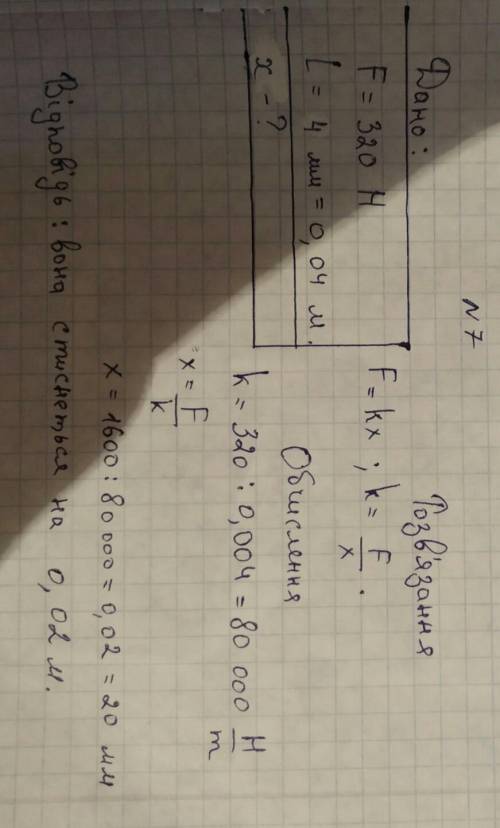 №7
Дано:
F = 320 Н
L = 4 мм = 0,04 м.
x - ?
Розв'язання
F = kx ; k = F/x .
Обчислення
k = 320 : 0,004 = 80 000 Н/m
x = F/k
x = 1600 : 80 000 = 0,02 = 20 мм
Відповідь: вона стиснеться на 0,02 м.